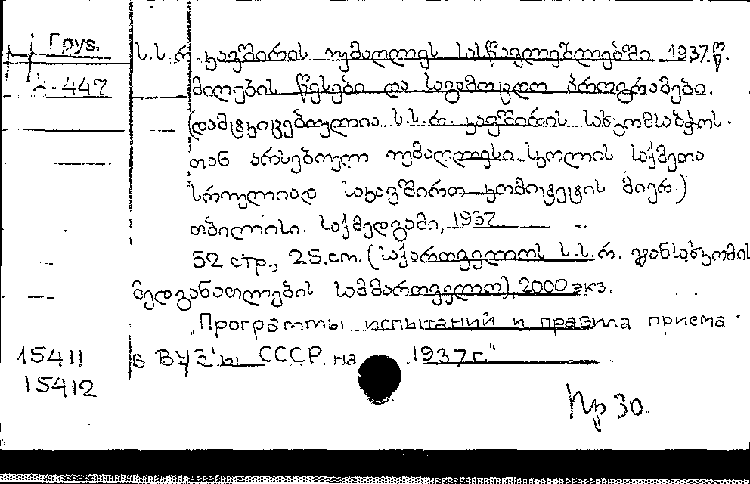 Груз.
2-447
ს.ს.რ. კავშირის უმაღლეს სასწავლებლებში 1937 წ.
მიღების წესები და საგამოცდო პროგრამები.
(დამტკიცებულია ს.ს.რ. კავშირის სახკომსაბჭოს-
თან არსებული უმაღლესი სკოლის საქმეთა
სრულიად საკავშირო კომიტეტის მიერ.)
თბილისი. საქმედგამი, 1937
52 стр., 25.cm. (საქართველოს ს.ს.რ. განსახკომის
მედგანათლების სამმართველო), 2000 экз.
„Программы испытаний и правила приема
в ВУЗ'ы СССР на 1937 г."
15411
15412
Пр 30.